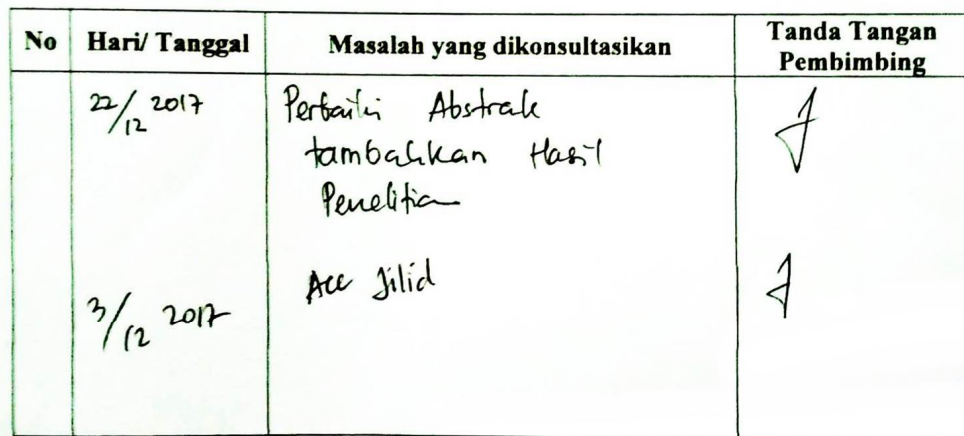 No Hari/ Tanggal Masalah yang dikonsultasikan Tanda Tangan Pembimbing
22/12 2017 Perbaiki Abstrak
tambahkan Hasil
Penelitian
3/12 2017 Acc Jilid